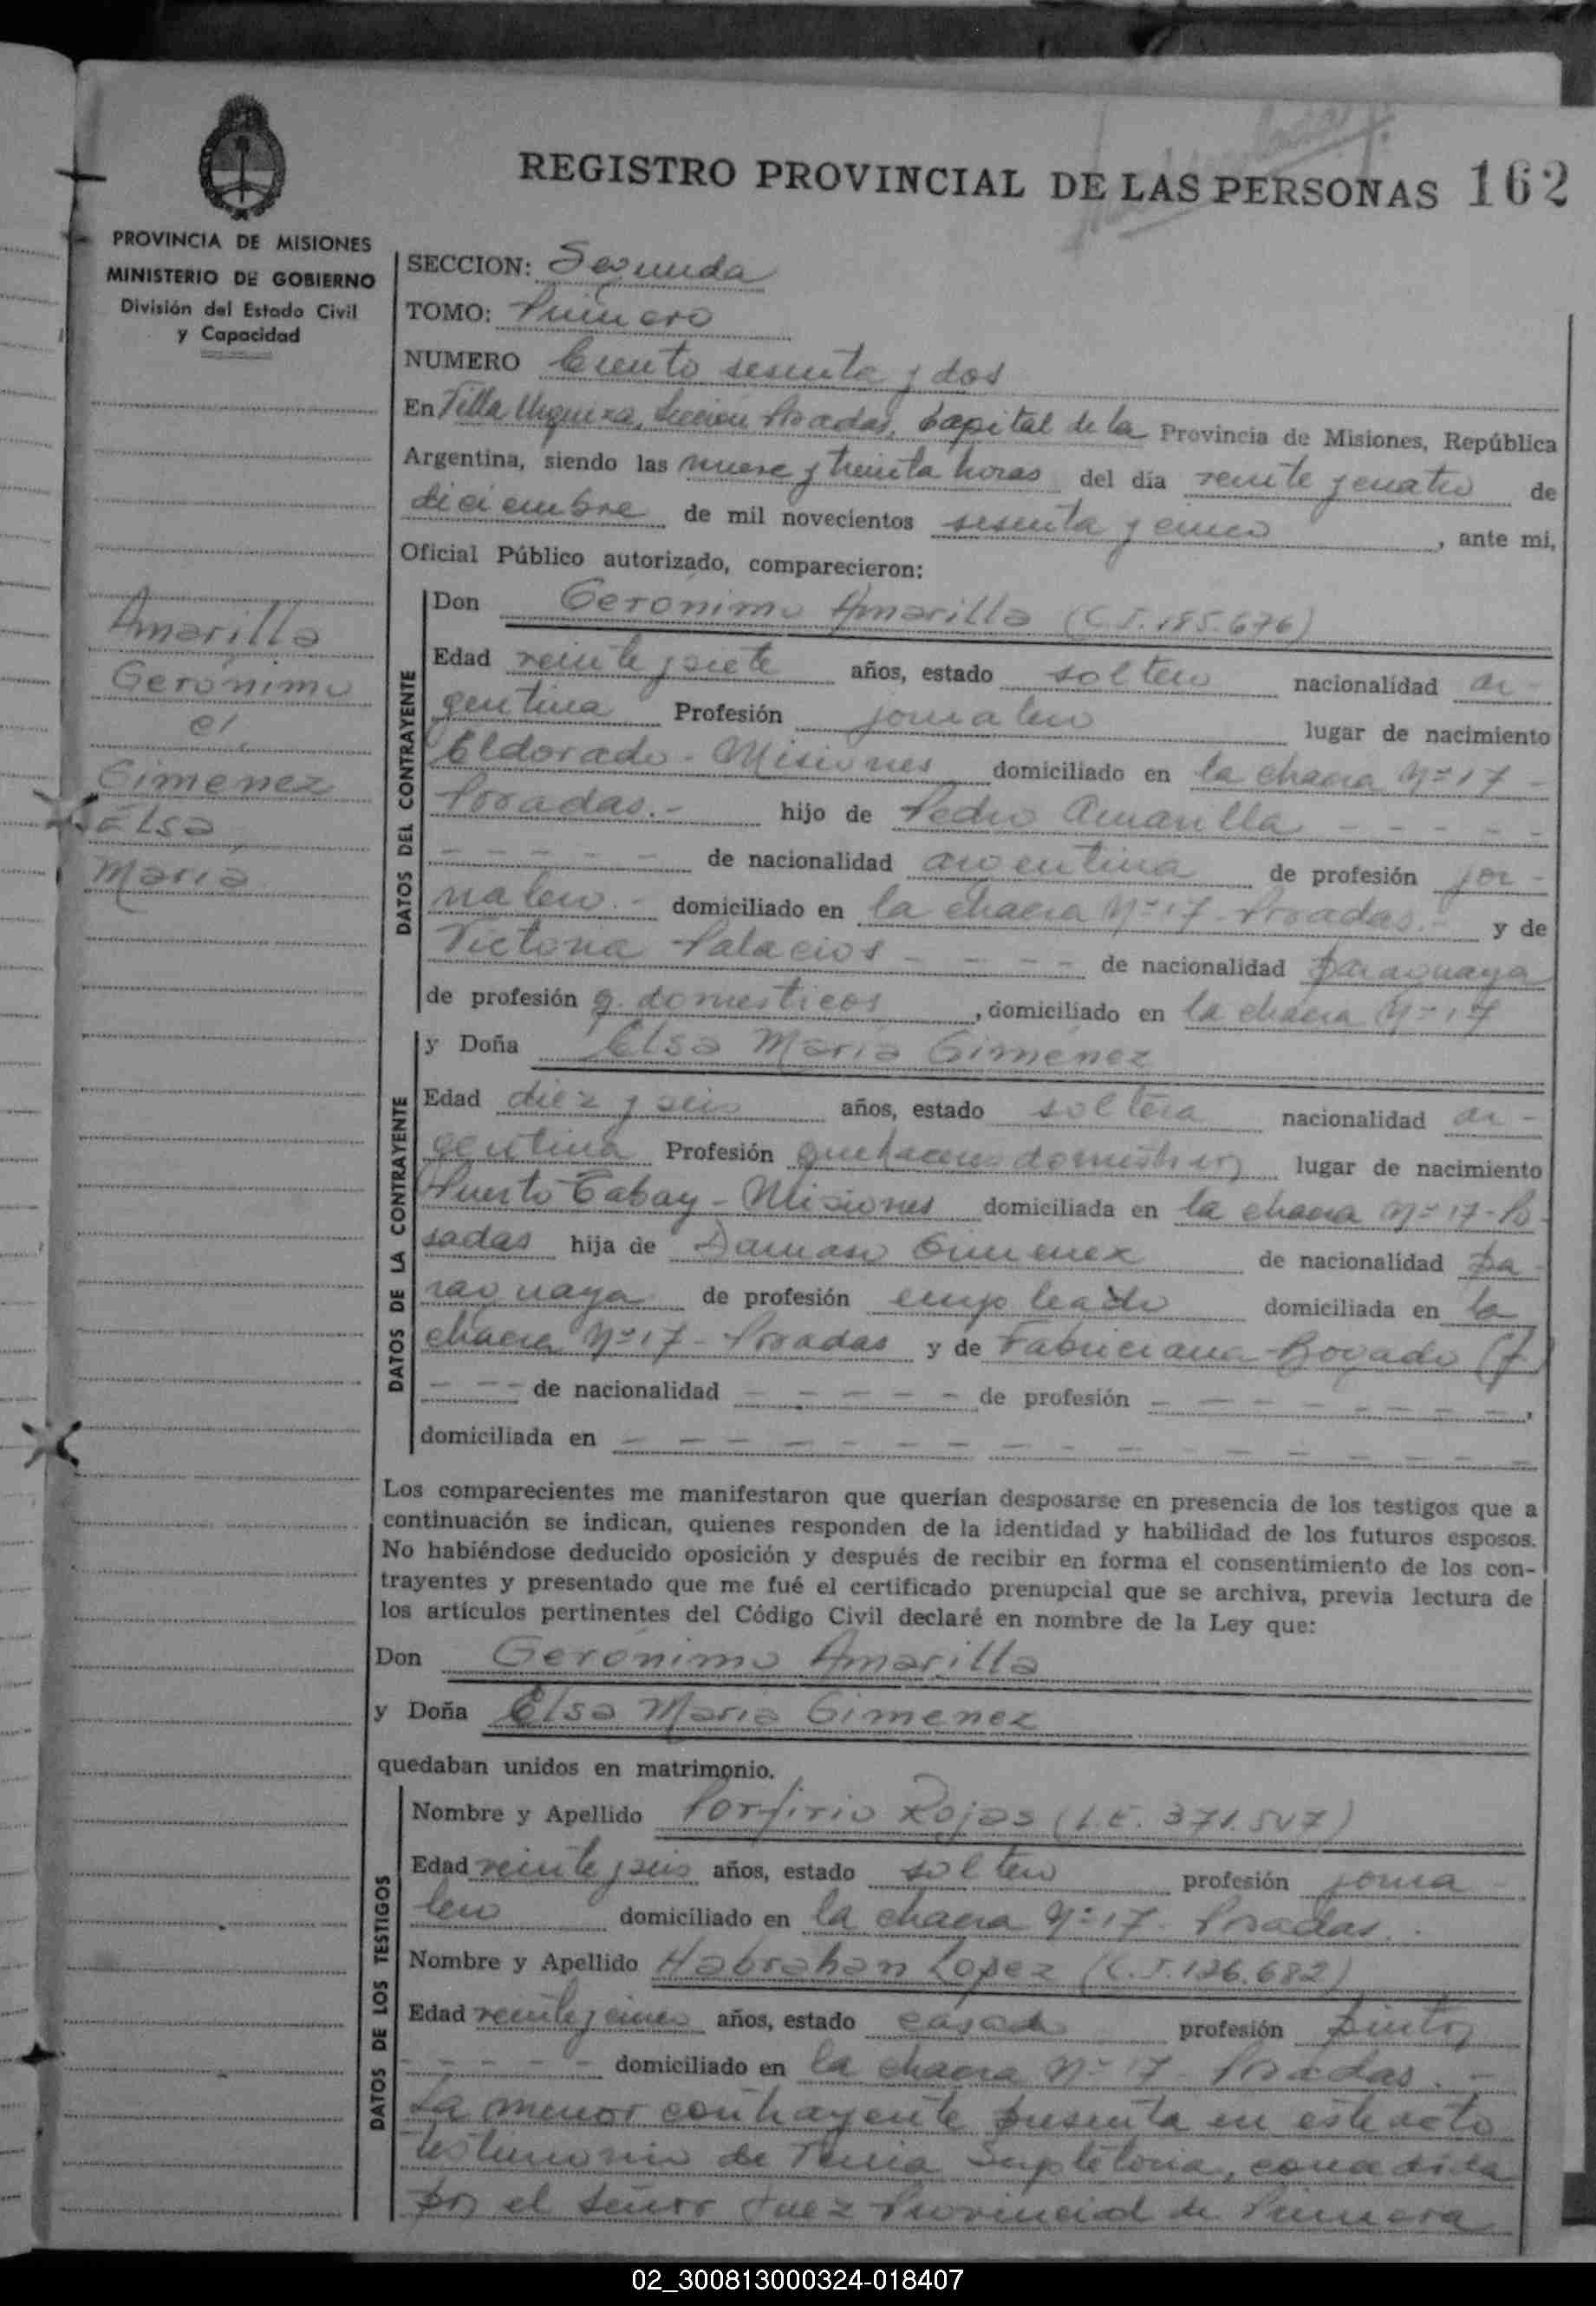 REGISTRO PROVINCIAL DE LAS PERSONAS 162
PROVINCIA DE MISIONES
MINISTERIO DE GOBIERNO
División del Estado Civil
y Capacidad
SECCION: Segunda
TOMO: Primero
NUMERO Ciento sesenta y dos
En Villa Urquiza, Sección Posadas, Capital de la Provincia de Misiones, República
Argentina, siendo las nueve y treinta horas del día veinte y cuatro de
diciembre de mil novecientos sesenta y cinco, ante mi,
Oficial Público autorizado, comparecieron:
Amarilla
Gerónimo
c/
Gimenez
Elsa
María
DATOS DEL CONTRAYENTE
Don Gerónimo Amarilla (C.I. 185.676)
Edad veinte y siete años, estado soltero nacionalidad ar-
gentina Profesión jornalero lugar de nacimiento
Eldorado - Misiones domiciliado en la chacra Nº 17 -
Posadas.- hijo de Pedro Amarilla - - - - -
- - - - - - de nacionalidad argentina de profesión jor-
nalero.- domiciliado en la chacra Nº 17 - Posadas.- y de
Victoria Palacios - - - - - de nacionalidad paraguaya
de profesión q. domesticos, domiciliado en la chacra Nº 17
DATOS DE LA CONTRAYENTE
y Doña Elsa María Gimenez
Edad diez y seis años, estado soltera nacionalidad ar-
gentina Profesión quehaceres domesticos lugar de nacimiento
Puerto Tabay - Misiones domiciliada en la chacra Nº 17 - Po-
sadas hija de Damaso Gimenez de nacionalidad pa-
raguaya de profesión empleado domiciliada en la
chacra Nº 17 - Posadas y de Fabriciana Bogado (f)
- - - de nacionalidad - - - - - de profesión - - - - - - - -,
domiciliada en - - - - - - - - - - - - - - - - -
Los comparecientes me manifestaron que querían desposarse en presencia de los testigos que a
continuación se indican, quienes responden de la identidad y habilidad de los futuros esposos.
No habiéndose deducido oposición y después de recibir en forma el consentimiento de los con-
trayentes y presentado que me fué el certificado prenupcial que se archiva, previa lectura de
los artículos pertinentes del Código Civil declaré en nombre de la Ley que:
Don Gerónimo Amarilla
y Doña Elsa María Gimenez
quedaban unidos en matrimonio.
DATOS DE LOS TESTIGOS
Nombre y Apellido Porfirio Rojas (L.E. 371.547)
Edad veinte y seis años, estado soltero profesión jorna-
lero domiciliado en la chacra Nº 17 - Posadas.-
Nombre y Apellido Habrahan Lopez (C.I. 126.682)
Edad veinte y cinco años, estado casado profesión pintor
- - - - - domiciliado en la chacra Nº 17 - Posadas.-
La menor contrayente presenta en este acto
testimonio de Venia Supletoria, concedida
por el señor Juez Provincial de Primera
02_300813000324-018407